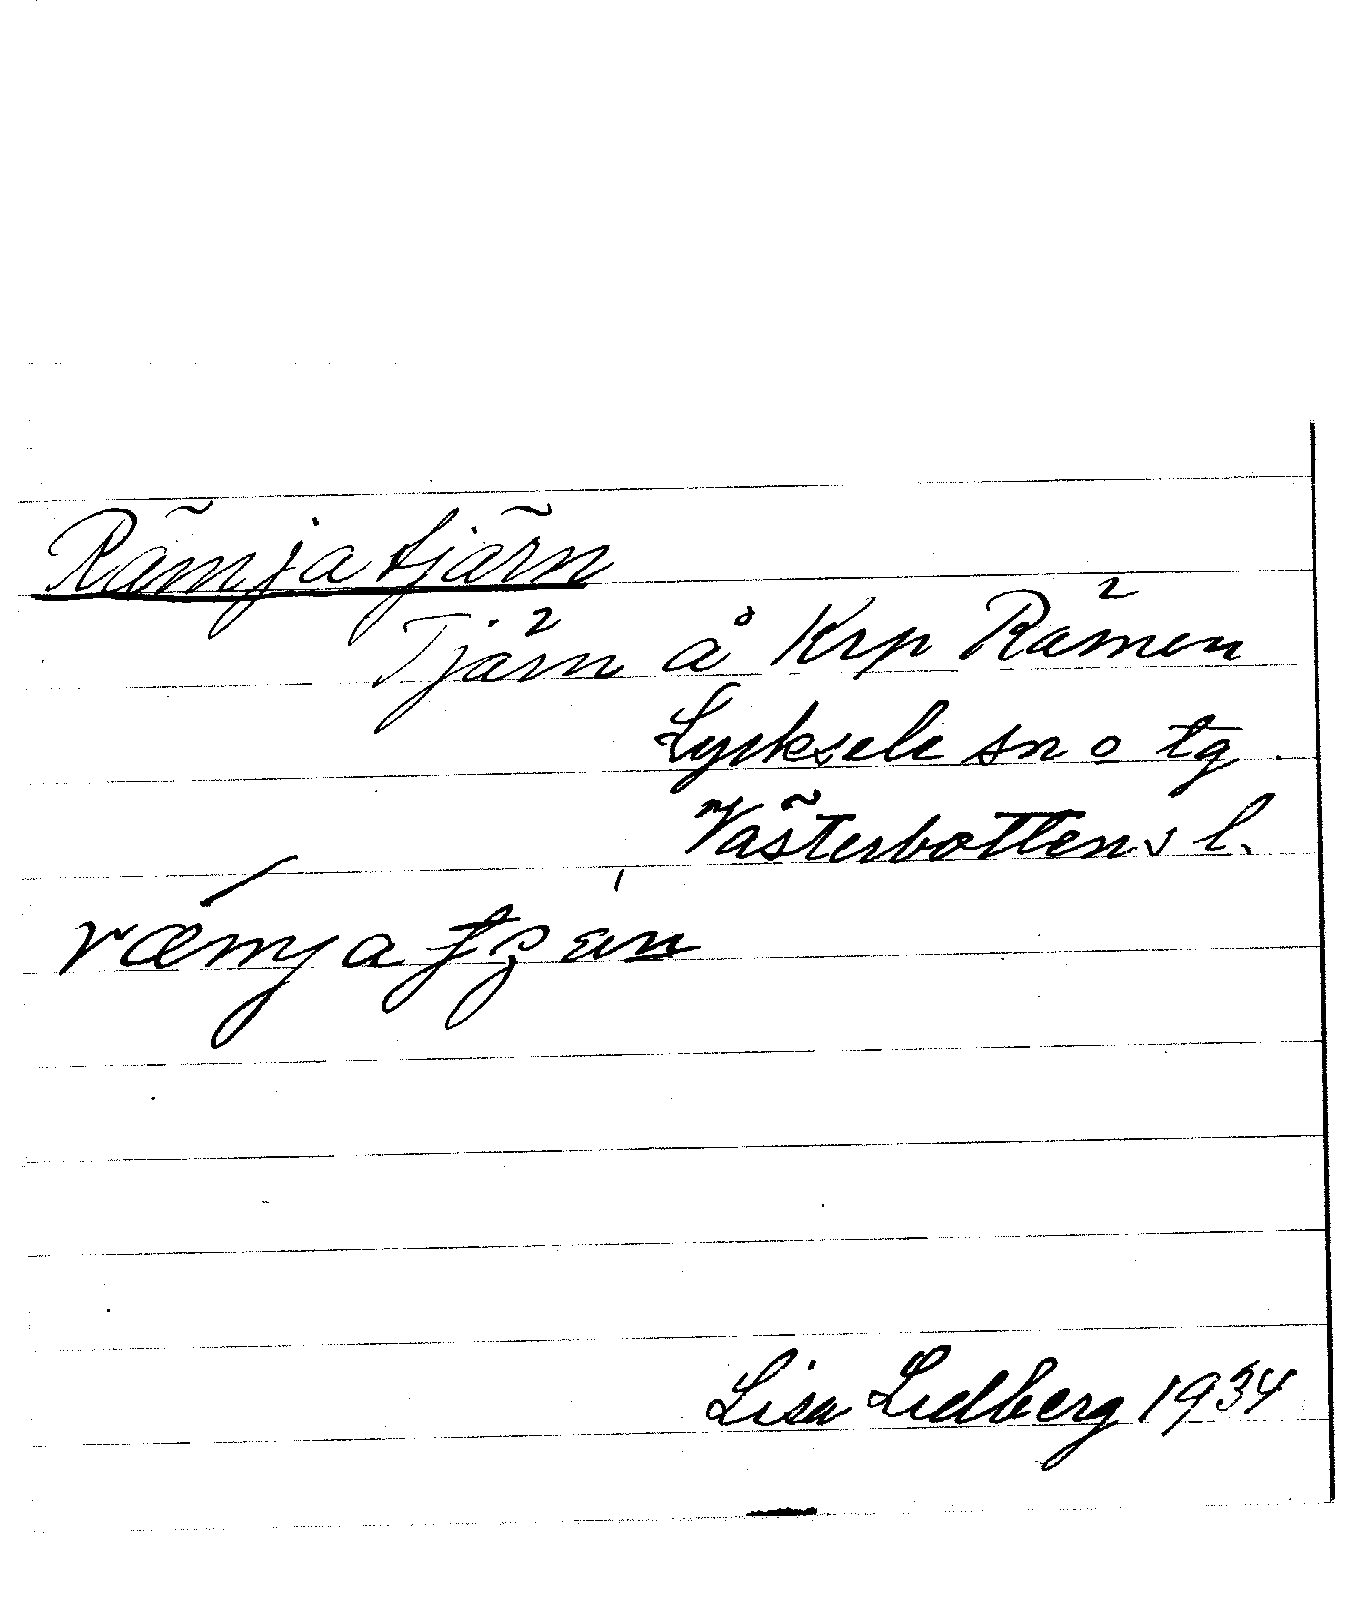 Rämjatjärn
Tjärn å Krp Rämen
Lycksele sn o tg
Västerbottens l.
Lisa Lidberg 1934